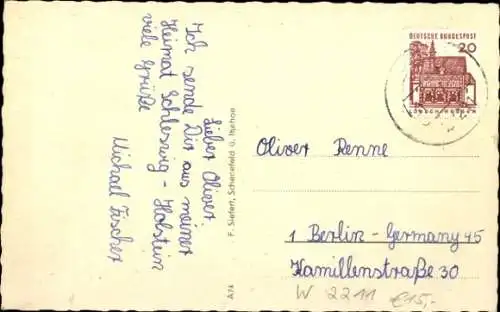 Lieber Oliver
Ich sende Dir aus meiner
Heimat Schleswig - Holstein
viele Grüße
Michael Fischer
F. Siefert, Schenefeld ü. Itzehoe
A76
DEUTSCHE BUNDESPOST
20
Oliver Renne
1 Berlin - Germany 45
Kamillenstraße 30
W 2211 €15,-